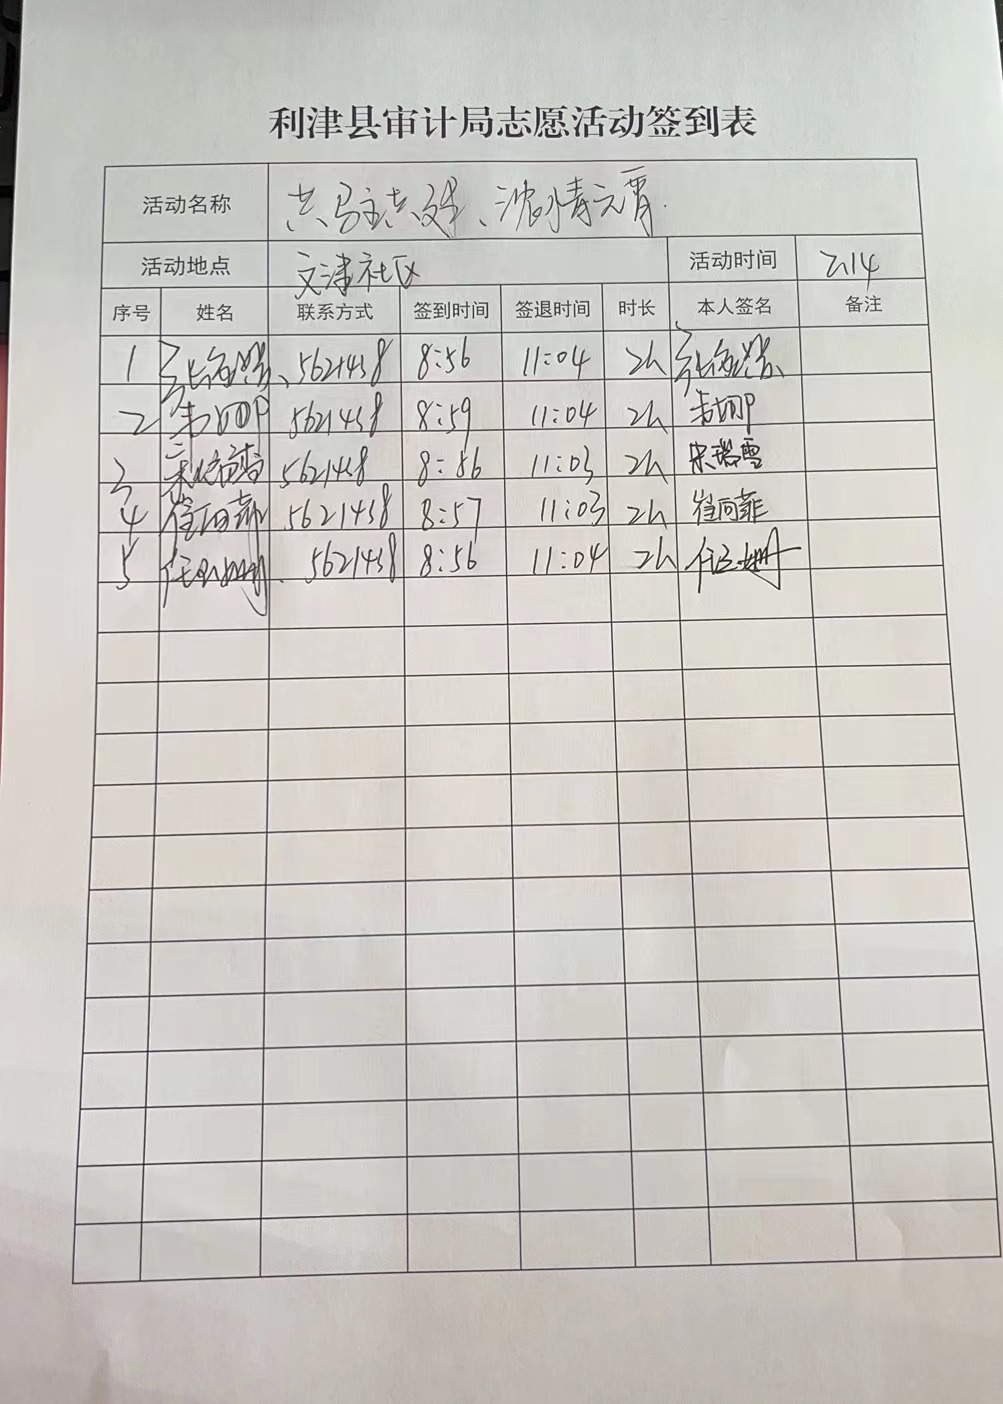 利津县审计局志愿活动签到表
活动名称 共驻共建、浓情元宵.
活动地点 文津社区 活动时间 2.14
序号 姓名 联系方式 签到时间 签退时间 时长 本人签名 备注
1 5621438 8:56 11:04 2h
2 5621438 8:59 11:04 2h
3 宋瑞雪 5621438 8:56 11:03 2h 宋瑞雪
4 崔向菲 5621438 8:57 11:03 2h 崔向菲
5 5621438 8:56 11:04 2h